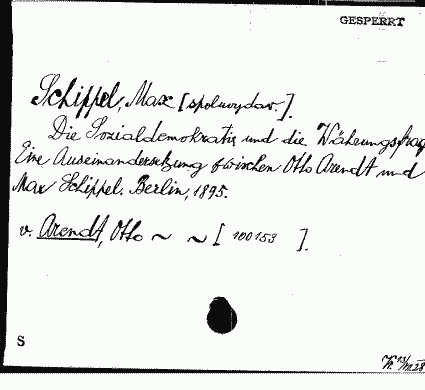 GESPERRT
Schippel, Max [spoluvydav.].
Die Sozialdemokratie und die Währungsfrag
Eine Auseinandersetzung zwischen Otto Arendt und
Max Schippel. Berlin, 1895.
v. Arendt, Otto ~ ~ [ 100153 ].
S